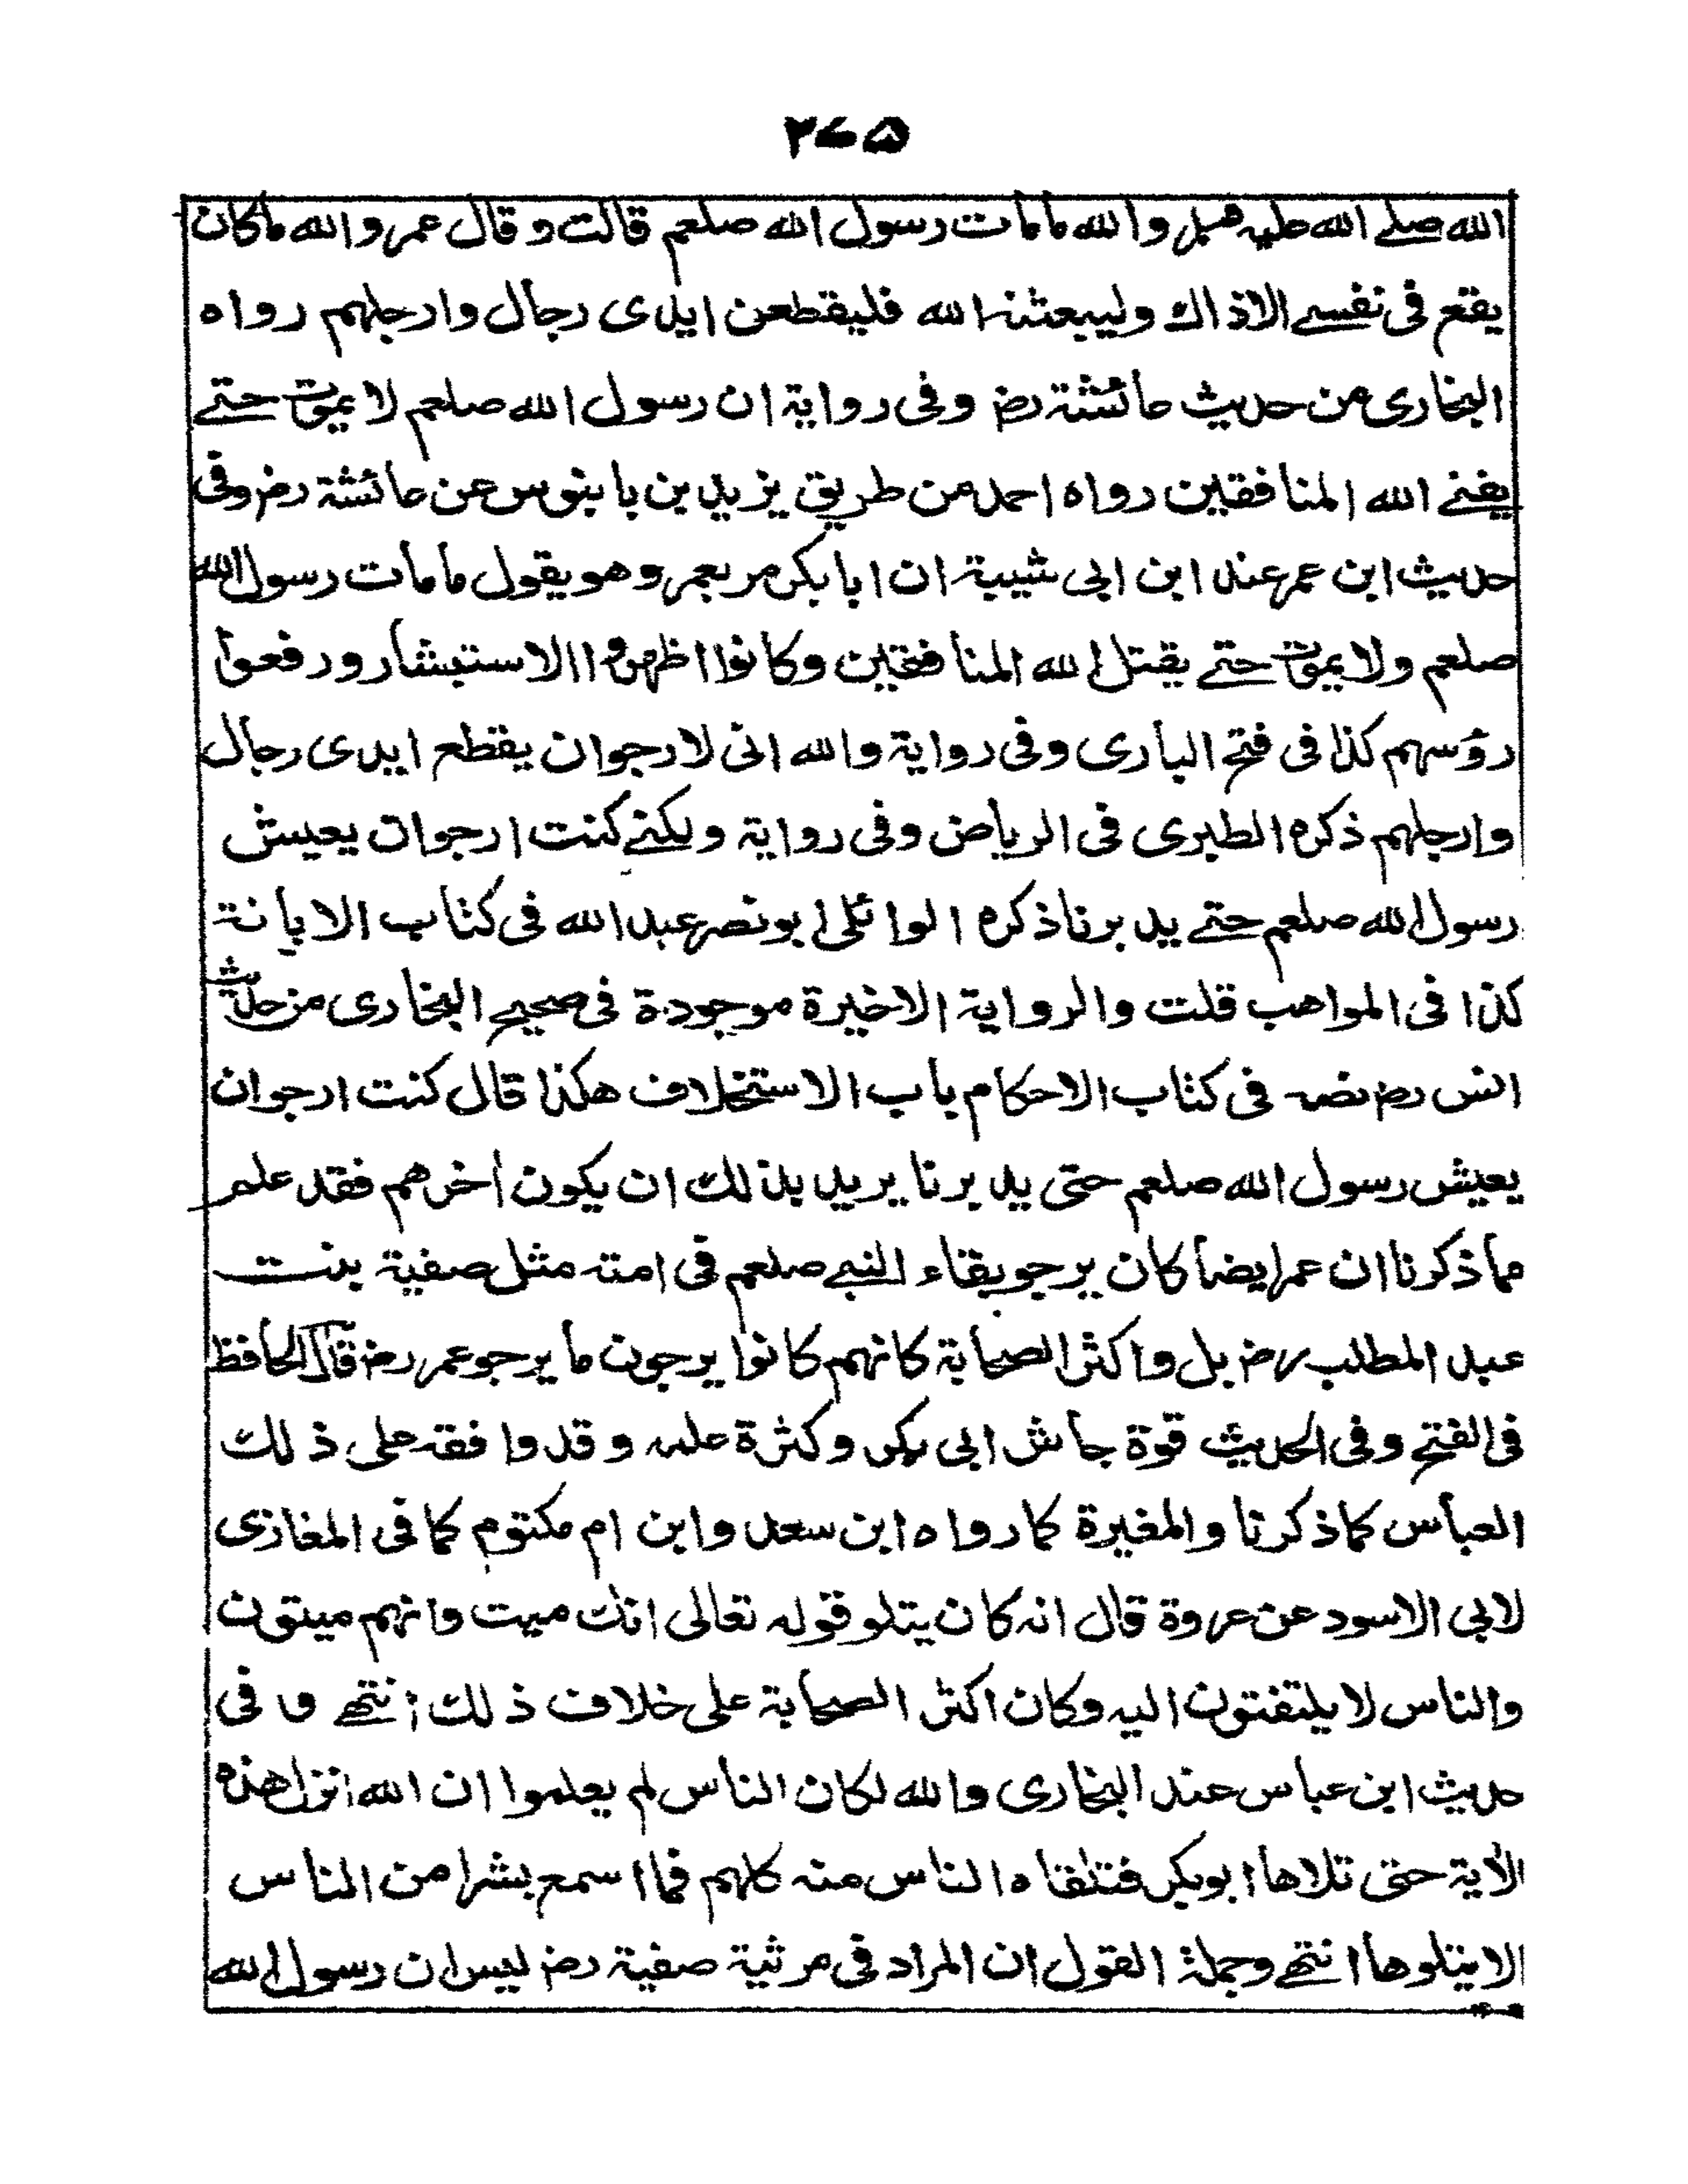 ٢٧٥
الله صلے الله عليه وسلم والله ما مات رسول الله صلعم قالت وقال عمر والله ما كان
يقع فى نفسے الا ذاك وليبعثنه الله فليقطعن ايدى رجال وارجلهم رواه
البخارى من حديث عائشة رض وفى رواية ان رسول الله صلعم لا يموت حتے
يفنے الله المنافقين رواه احمد من طريق يزيد بن بابنوس عن عائشة رض وفى
حديث ابن عمر عند ابن ابى شيبة ان ابا بكر مر بعمر وهو يقول ما مات رسول الله
صلعم ولا يموت حتے يقتل الله المنافقين وكانوا اظهروا الاستبشار ورفعوا
رؤسهم كذا فى فتح البارى وفى رواية والله انى لارجو ان يقطع ايدى رجال
وارجلهم ذكره الطبرى فى الرياض وفى رواية ولكنے كنت ارجو ان يعيش
رسول الله صلعم حتے يدبرنا ذكره الوائلى ابو نصر عبد الله فى كتاب الابانة
كذا فى المواهب قلت والرواية الاخيرة موجودة فى صحيح البخارى من حديث
انس رض نصه فى كتاب الاحكام باب الاستخلاف هكذا قال كنت ارجو ان
يعيش رسول الله صلعم حتى يدبرنا يريد بذلك ان يكون اٰخرهم فقد علم
مما ذكرنا ان عمر ايضا كان يرجو بقاء النبے صلعم فى امته مثل صفية بنت
عبد المطلب رض بل واكثر الصحابة كانهم كانوا يرجون ما يرجو عمر رض قال الحافظ
فى الفتح وفى الحديث قوة جاش ابى بكر وكثرة علمه وقد وافقه على ذلك
العباس كما ذكرنا والمغيرة كما رواه ابن سعد وابن ام مكتوم كما فى المغازى
لابى الاسود عن عروة قال انه كان يتلو قوله تعالى انك ميت وانهم ميتون
والناس لا يلتفتون اليه وكان اكثر الصحابة على خلاف ذلك انتهے وفى
حديث ابن عباس عند البخارى والله لكان الناس لم يعلموا ان الله انزل هذه
الاٰية حتى تلاها ابو بكر فتلقاه الناس منه كلهم فما اسمع بشرا من الناس
الا يتلوها انتهے وجملة القول ان المراد فى مرثية صفية رض ليس ان رسول الله